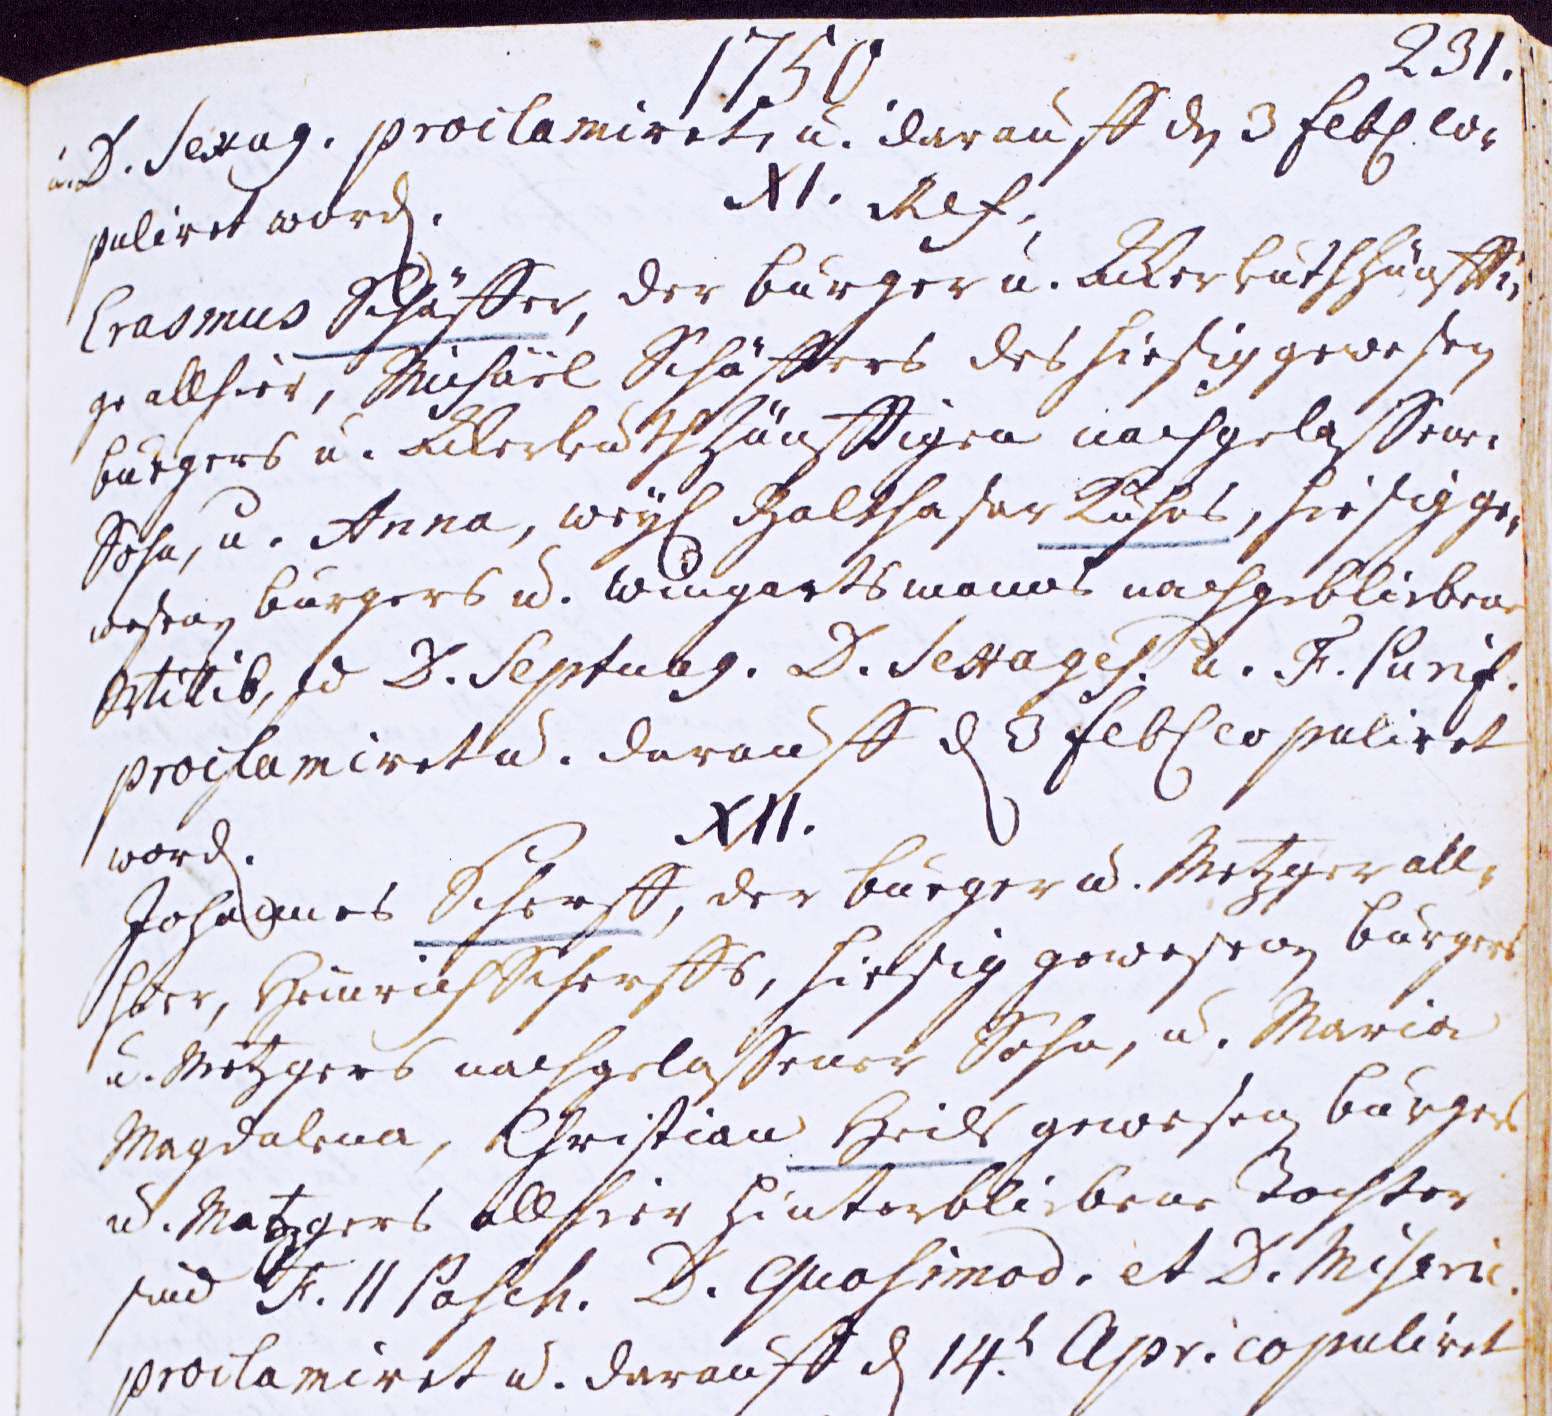 1750
231.
u. D. Sexag. proclamiret, u. darauff dn 3 Febr. co-
puliret word.
XI. Ref.
Erasmus Schäffer, der burger u. Ackerleuthzünffti-
ge allhier, Michäel Schäffers des hiesig gewesen
burgers u. Ackerleuthzünfftigen nachgelassener
Sohn, u. Anna, weyl. Balthasar Kuhns, hiesig ge-
wesen burgers u. Wingartsmanns nachgebliebene
Wittib, sd D. Septuag. D. Sexages. u. F. Purif.
proclamiret u. darauff d 3 Febr. copuliret
word.
XII.
Johannes Scherff, der burger u. Metzger all-
hier, Heinrich Scherffs, hiesig gewesen burgers
u. Metzgers nachgelassener Sohn, u. Maria
Magdalena, Christian Heils gewesen burgers
u. Metzgers allhier hinterbliebene Tochter
sind F. II Pasch. D. Quasimod. et D. Miseric.
proclamiret u. darauff d 14.t Apr. copuliret